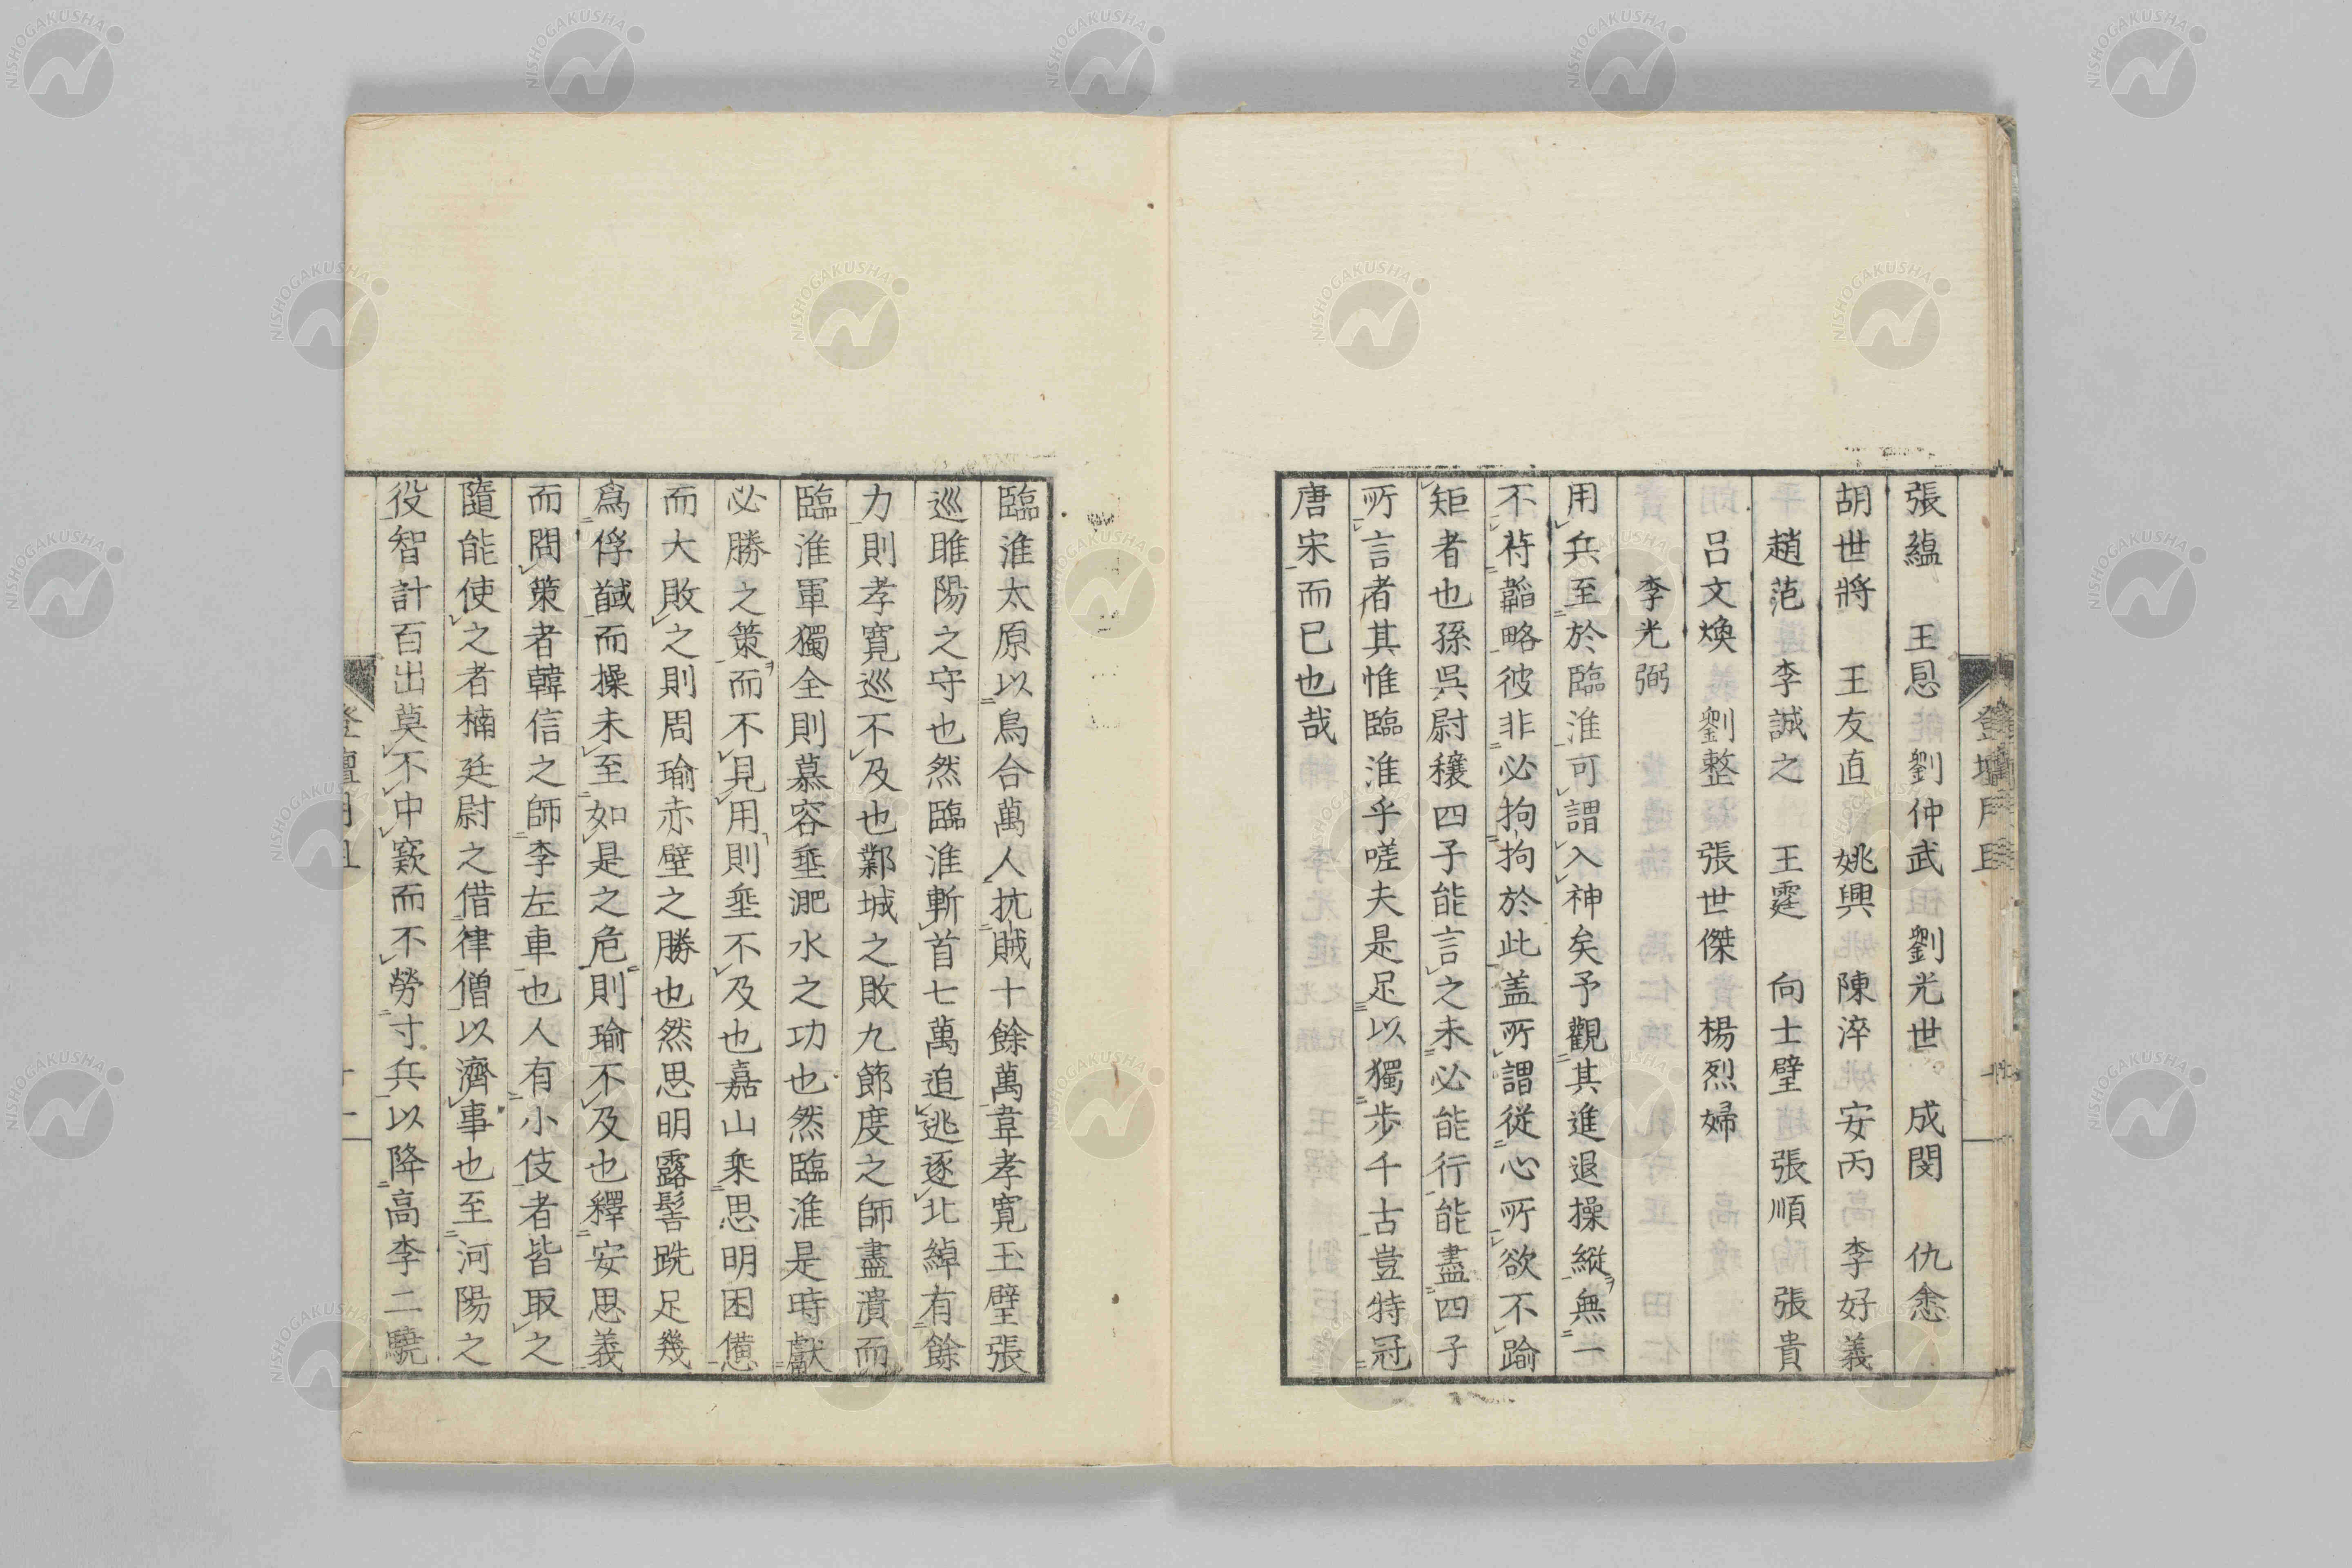 張蘊　王恩　劉仲武　劉光世　成閔　仇悆
胡世將　王友直　姚興　陳淬　安丙　李好義
趙范　李誠之　王霆　向士璧　張順　張貴
呂文煥　劉整　張世傑　楊烈婦
李光弼
用兵至於臨淮可謂入神矣予觀其進退操縱無一
不符韜略彼非必拘拘於此盖所謂從心所欲不踰
矩者也孫吳尉穰四子能言之未必能行能盡四子
所言者其惟臨淮乎嗟夫是足以獨步千古豈特冠
唐宋而已也哉
臨淮太原以烏合萬人抗賊十餘萬韋孝寬玉壁張
巡睢陽之守也然臨淮斬首七萬追逃逐北綽有餘
力則孝寬巡不及也鄴城之敗九節度之師盡潰而
臨淮軍獨全則慕容垂淝水之功也然臨淮是時獻
必勝之策而不見用則垂不及也嘉山乘思明困憊
而大敗之則周瑜赤壁之勝也然思明露髻跣足幾
爲俘馘而操未至如是之危則瑜不及也釋安思義
而問策者韓信之師李左車也人有小伎者皆取之
隨能使之者楠廷尉之借律僧以濟事也至河陽之
役智計百出莫不中窾而不勞寸兵以降高李二驍
NISHOGAKUSHA